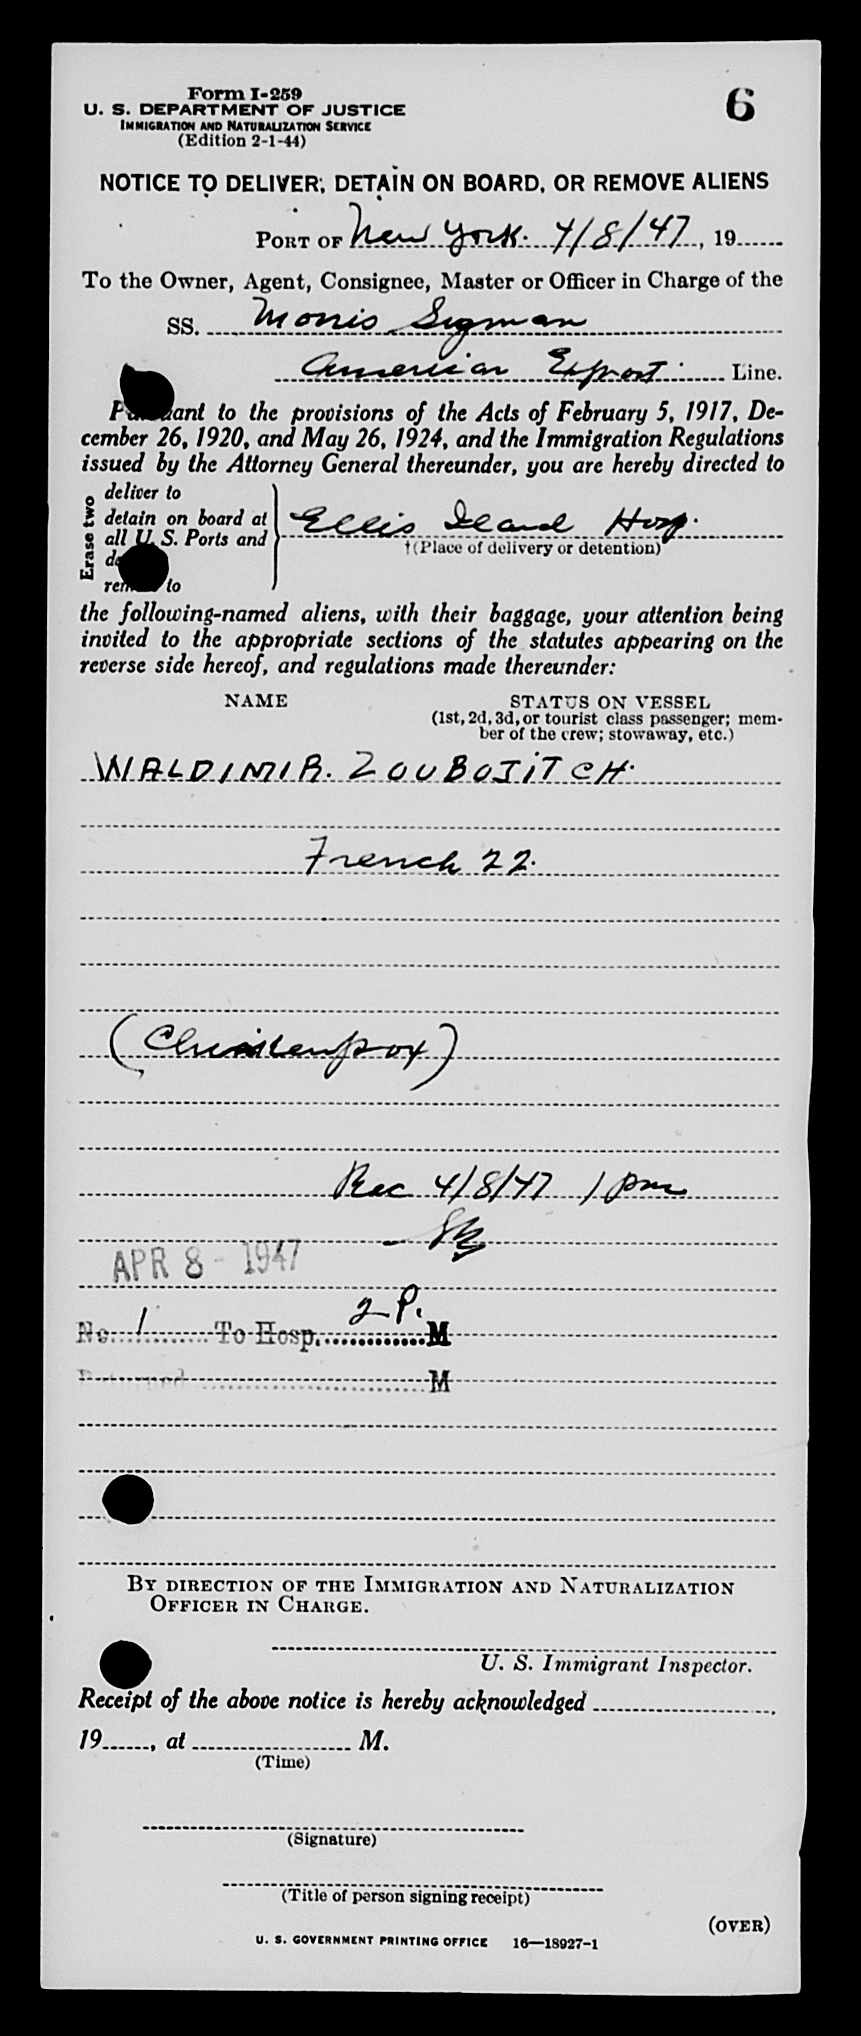 Form I-259
U. S. DEPARTMENT OF JUSTICE
IMMIGRATION AND NATURALIZATION SERVICE
(Edition 2-1-44)
6
NOTICE TO DELIVER, DETAIN ON BOARD, OR REMOVE ALIENS
PORT OF New York. 4/8/47, 19
To the Owner, Agent, Consignee, Master or Officer in Charge of the
SS. Morris Sigman
American Export Line.
Pursuant to the provisions of the Acts of February 5, 1917, De-
cember 26, 1920, and May 26, 1924, and the Immigration Regulations
issued by the Attorney General thereunder, you are hereby directed to
Erase two
deliver to
detain on board at
all U. S. Ports and
to
Ellis Island Hosp.
†(Place of delivery or detention)
the following-named aliens, with their baggage, your attention being
invited to the appropriate sections of the statutes appearing on the
reverse side hereof, and regulations made thereunder:
NAME
STATUS ON VESSEL
(1st, 2d, 3d, or tourist class passenger; mem-
ber of the crew; stowaway, etc.)
WALDIMIR. ZOUBOJITCH.
French 22.
(Chickenpox)
Rec 4/8/47 1 pm
APR 8 - 1947
No. 1 To Hosp. 2 P. M
Returned M
BY DIRECTION OF THE IMMIGRATION AND NATURALIZATION
OFFICER IN CHARGE.
U. S. Immigrant Inspector.
Receipt of the above notice is hereby acknowledged
19, at M.
(Time)
(Signature)
(Title of person signing receipt)
(OVER)
U. S. GOVERNMENT PRINTING OFFICE 16—18927-1